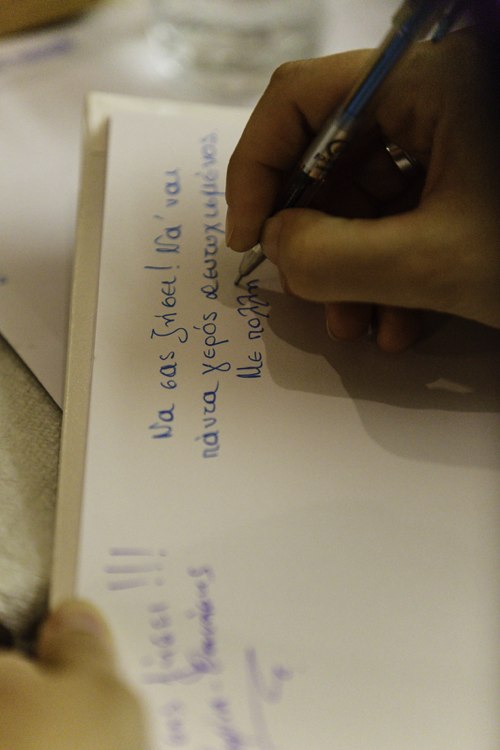 Να σας ζήσει! Να' ναι
πάντα γερός & ευτυχισμένος
Με πολλή
ζήσει !!!